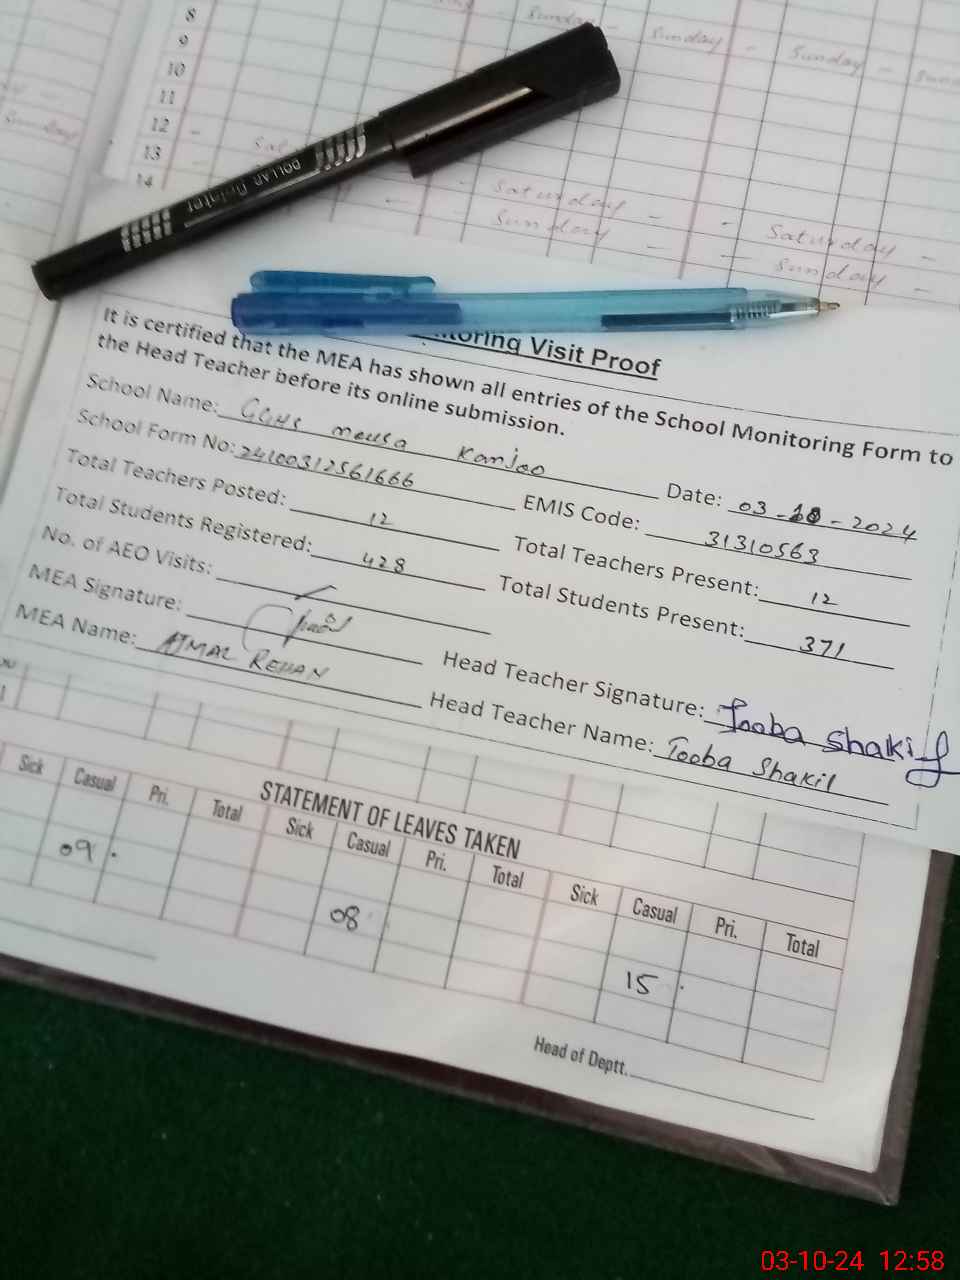 8
Sunday - Sunday - Sunday -
9
10
11
12
13
14
Saturday - - Saturday -
Sunday - - Sunday -
Sunday
DOLLAR Pointer
Visit Proof
It is certified that the MEA has shown all entries of the School Monitoring Form to
the Head Teacher before its online submission.
School Name: GGHS Kanjoo Date: 03-10-2024
School Form No: 24100312561666 EMIS Code: 31310563
Total Teachers Posted: 12 Total Teachers Present: 12
Total Students Registered: 428 Total Students Present: 371
No. of AEO Visits:
MEA Signature: Head Teacher Signature: Tooba Shakil
MEA Name: AJMAL REHAN Head Teacher Name: Tooba Shakil
STATEMENT OF LEAVES TAKEN
Sick Casual Pri. Total Sick Casual Pri. Total Sick Casual Pri. Total
09 08 15
Head of Deptt.
03-10-24 12:58